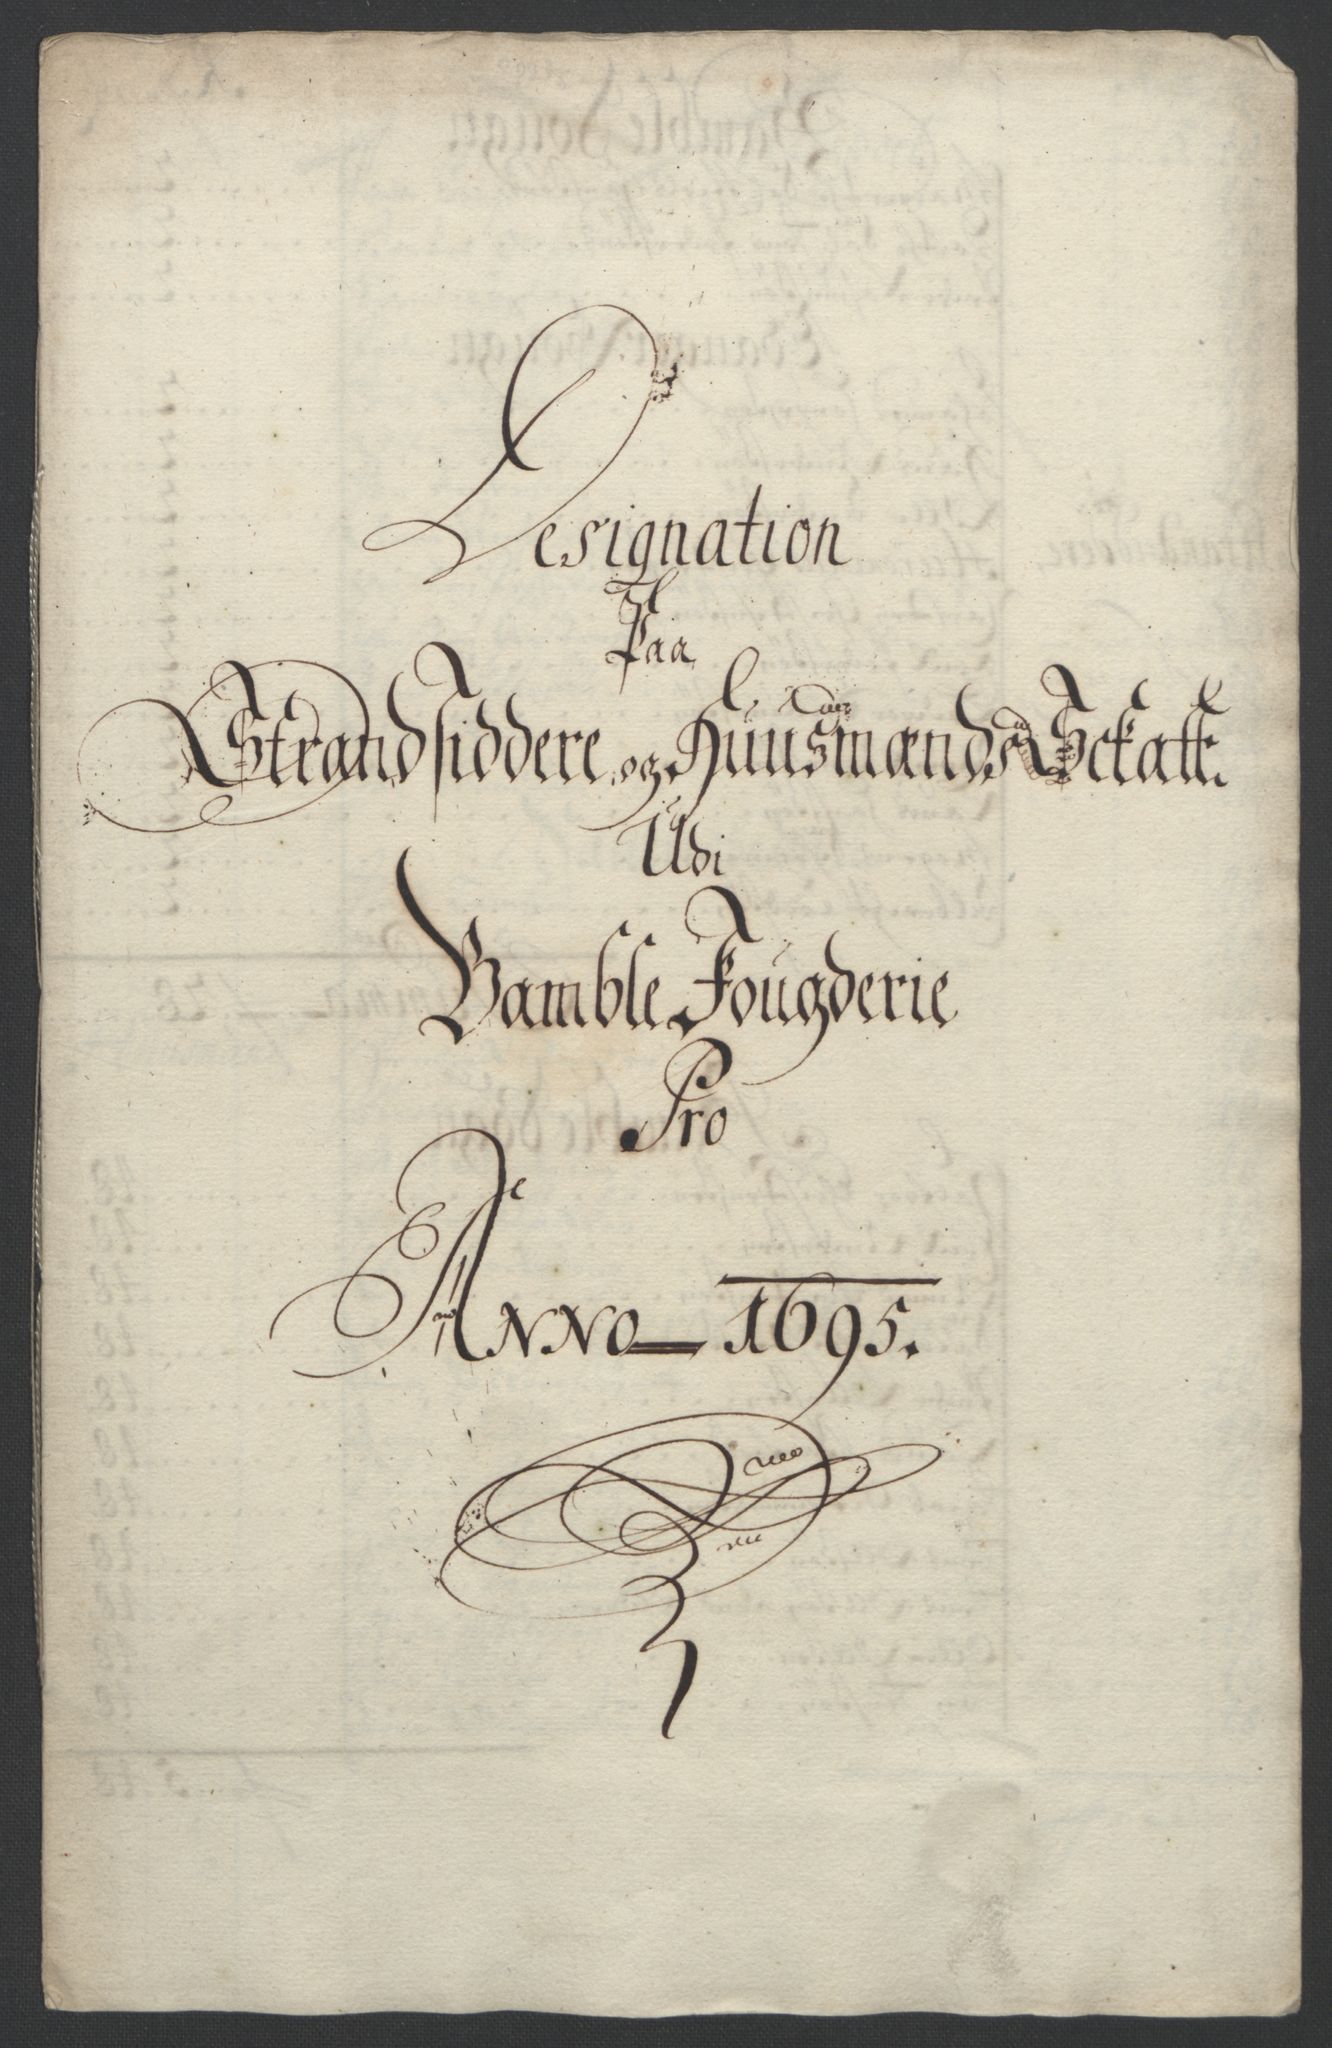 Designation
Paa
Strandsiddere og Huusmænds Schatt.
Udi
Bamble Fougderie
Pro
Anno 1695.